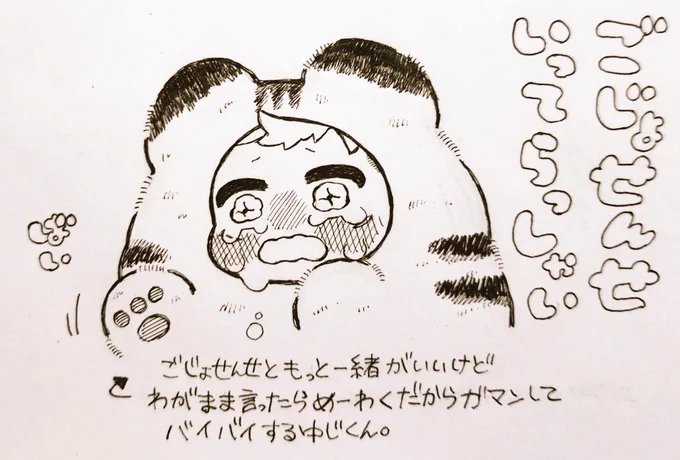 ごじょせんせ
いってらっしゃい
ごじょせんせともっと一緒がいいけど
わがまま言ったらめーわくだからガマンして
バイバイするゆじくん。